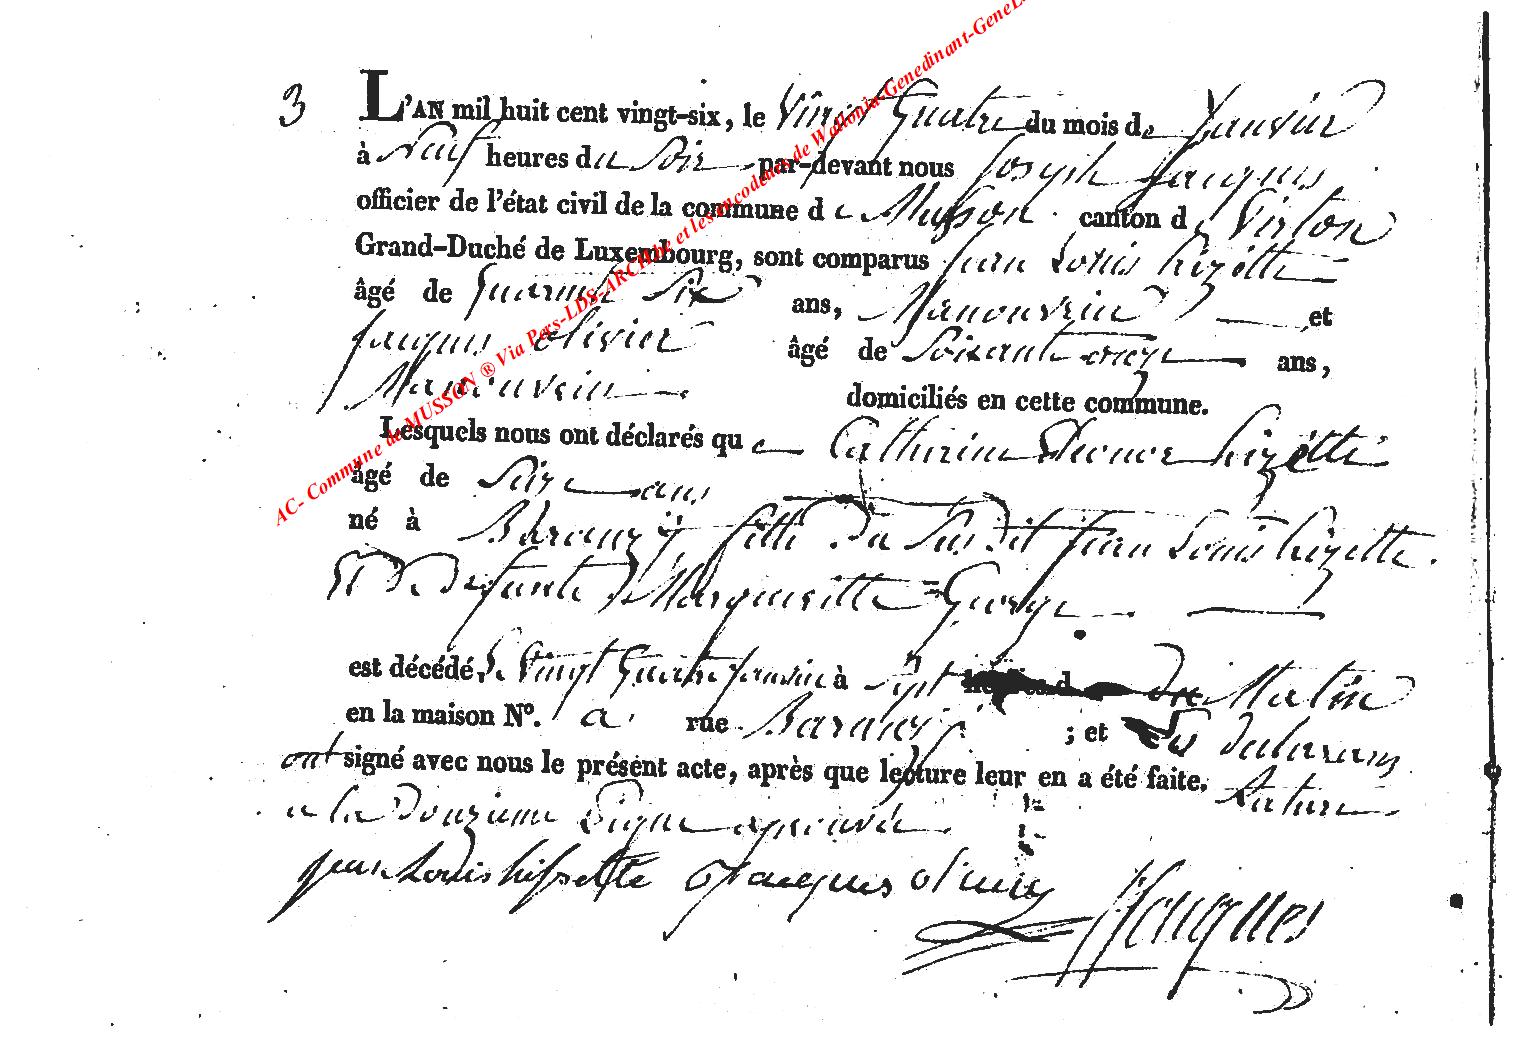 3 L'AN mil huit cent vingt-six, le Vingt Quatre du mois de Janvier
à Neuf heures du Soir par-devant nous Joseph Jacques
officier de l'état civil de la commune de Musson canton de Virton
Grand-Duché de Luxembourg, sont comparus Jean Louis hizette
âgé de Quarante Six ans, Manouvrier et
Jacques olivier âgé de Soixante onze ans,
Manouvrier domiciliés en cette commune.
Lesquels nous ont déclarés que Catherine hizette
âgé de Seize ans
né à Baranzy fille du Susdit Jean Louis hizette.
Et De Defunte Margueritte George
est décédé, le vingt Quatre Janvier à Sept heures d du Matin
en la maison N°. a rue Baranzi ; et les declarans
ont signé avec nous le présent acte, après que lecture leur en a été faite. Rature
a la Douzieme Ligne aprouvée
jean Louis hissette Jacques olivier JJacques
AC- Commune de MUSSON ® Via Pers-LDS-ARCHbe et les encodeurs de Wallonia-Genedinant-GeneL